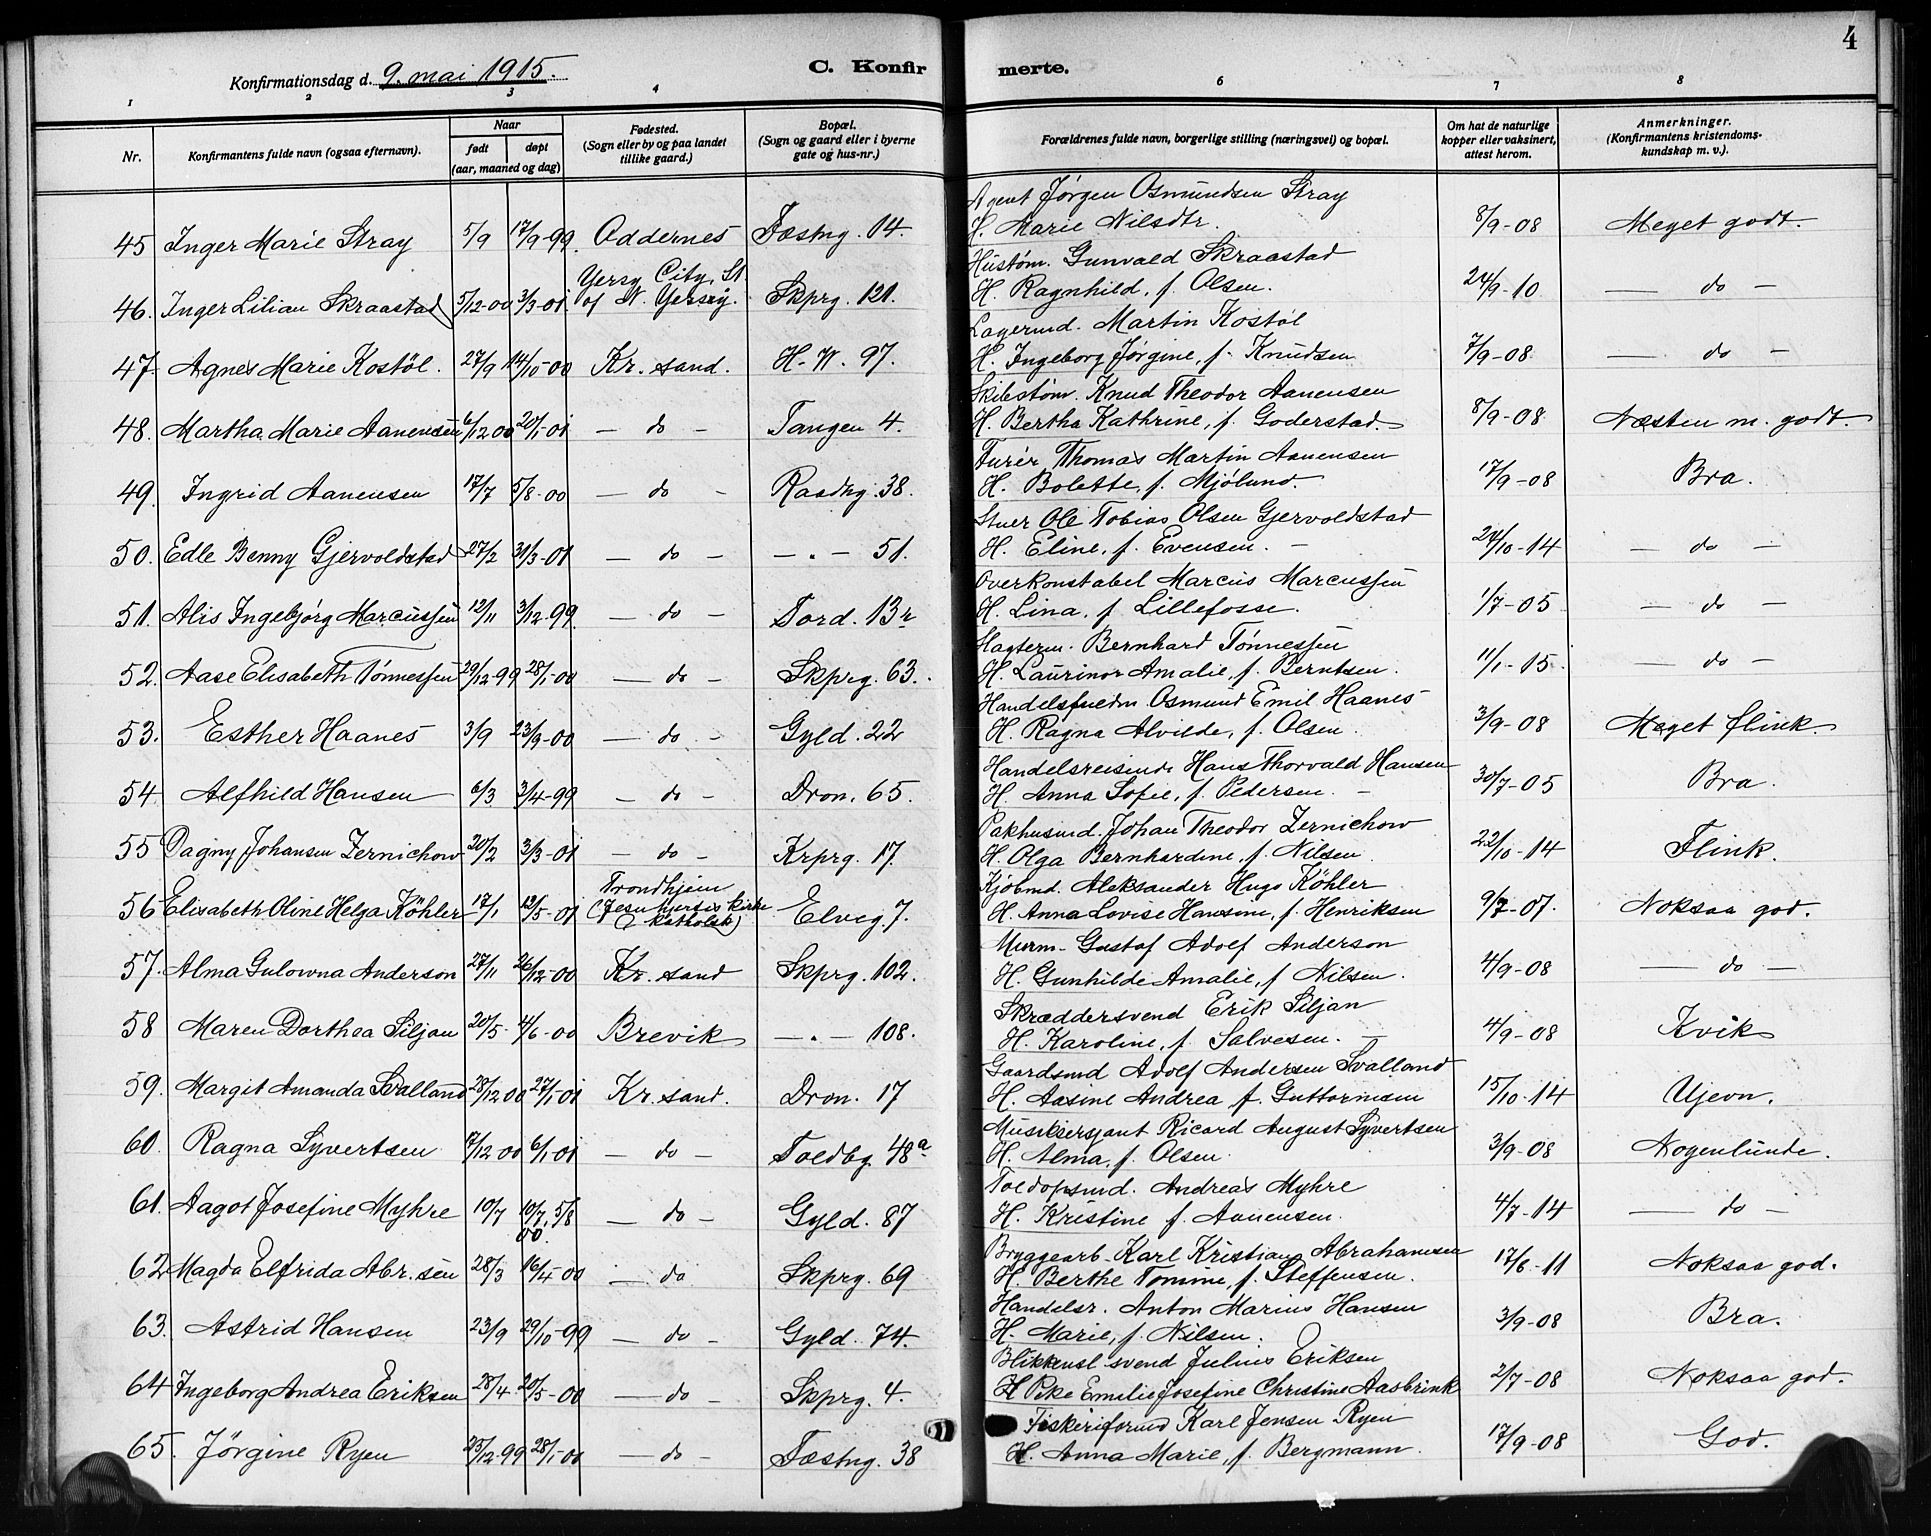 4
Konfirmationsdag d. 9. mai 1915.
C. Konfirmerte.
1 2 3 4 6 7 8
Nr. Konfirmantens fulde navn (ogsaa efternavn). Naar født døpt (aar, maaned og dag) Fødested. (Sogn eller by og paa landet tillike gaard.) Bopæl. (Sogn og gaard eller i byerne gate og hus-nr.) Forældrenes fulde navn, borgerlige stilling (næringsvei) og bopæl. Om hat de naturlige kopper eller vaksinert, attest herom. Anmerkninger. (Konfirmantens kristendoms-kundskap m. v.).
Agent Jörgen Osmundsen Stray
45 Inger Marie Stray 5/9 17/9-99 Oddernes Fæstng. 14. H. Marie Nilsdtr. 8/9-08 Meget godt.
Yersy City, St. Hustøm. Gunvald Skraastad
46. Inger Lilian Skraastad 5/12-00 3/3-01. of N. Yersey. Skprg. 121. H. Ragnhild, f. Olsen. 24/9-10 — do —
Lagermd. Martin Kostøl
47. Agnes Marie Kostöl. 27/9 14/10-00 Kr. sand. H.-W. 97. H. Ingeborg Jörgine, f. Knudsen 7/9-08. — do —
Skibstøm. Knud Theodor Aanensen
48. Martha Marie Aanensen 6/12 00 20/1-01 — do — Tangen 4. H. Bertha Kathrine, f. Goderstad. 8/9-08 Næsten m. godt.
Furér Thomas Martin Aanensen
49. Ingrid Aanensen 17/7 5/8-00 — do — Raadhg. 38. H. Bolette, f. Mjölund. 17/9-08 Bra.
Stuer Ole Tobias Olsen Gjervoldstad
50. Edle Benny Gjervoldstad 27/2 31/3-01 — do — — . — 51. H. Eline, f. Evensen. — 24/10-14 — do —
Overkonstabel Marcus Marcussen
51. Alis Ingebjörg Marcussen 12/11 3/12-99 — do — Tord. 13 H. Lina, f. Lillefosse. 1/7-05 — do —
Bernhard Tönnessen
52. Aase Elisabeth Tönnessen 29/12-99 28/1-00 — do — Skprg. 63. H. Laurinor Amalie, f. Berntsen. 11/1-15. — do —
Osmund Emil Haanes
53. Esther Haanes 3/9 23/9-00 — do — Gyld. 22 H. Ragna Alvilde, f. Olsen. 3/9-08 Meget flink.
Handelsreisende Hans Thorvald Hansen
54 Alfhild Hansen 6/3 3/4-99 — do — Dron. 65. H. Anna Sofie, f. Pedersen. — 30/7-05 Bra.
Pakhusmd. Johan Theodor Zernichow
55 Dagny Johansen Zernichow 20/2 3/3-01 — do — Krprg. 17. H. Olga Bernhardine, f. Nilsen. 22/10-14 Flink.
Trondhjem Kjøbmd. Aleksander Hugo Köhler
56 Elisabeth Oline Helga Köhler 17/1 12/5-01 (Jesu hjertes kirke katholsk) Elveg. 7. H. Anna Lovise Hansine, f. Henriksen 9/7-07. Noksaa god.
Murm. Gustaf Adolf Anderson
57. Alma Gulowna Anderson 27/11 26/12-00 Kr. sand Skprg. 102. H. Gunhilde Amalie, f. Nilsen. 4/9-08 — do —
Skræddersvend Erik Siljan
58 Maren Dorthea Siljan 20/5- 4/6-00 Brevik — . — 108. H. Karoline, f. Salvesen. — 4/9-08 Kvik
Gaardsmd Adolf Andersen Svalland
59. Margit Amanda Svalland 28/12 00 27/1-01 Kr. sand. Dron. 17 H. Aasine Andrea f. Guttormsen 15/10-14 Ujevn.
Musiksersjant Ricard August Syvertsen
60. Ragna Syvertsen 7/12 00 6/1-01 — do — Toldbg. 48a H. Alma, f. Olsen. 3/9-08 Nogenlunde.
Toldopsmd. Andreas Myhre
61. Aagot Josefine Myhre 10/7 10/7, 5/8 00. — do — Gyld. 87 H. Kristine f. Aanensen. 4/7-14 — do —
Bryggearb. Karl Kristian Abrahamsen
62 Magda Elfrida Abr.sen 28/3 16/4-00 — do Skprg. 69 H. Berthe Tomine, f. Steffensen. 17/6-11 Noksaa god.
Handelsr. Anton Marius Hansen
63. Astrid Hansen 23/9 29/10-99 — do — Gyld. 74. H. Marie, f. Nilsen. 3/9-08 Bra.
Blikkensl svend Julius Eriksen
64 Ingeborg Andrea Eriksen 28/4 20/5-00 — do — Skprg. 4. H. Emilie Josefine Christine Aasbrink 2/7-08 Noksaa god.
Karl Jensen Ryen
65. Jörgine Ryen 25/12-99 28/1-00 — do — Fæstng. 38 H. Anna Marie, f. Bergmann. 17/9-08 God.